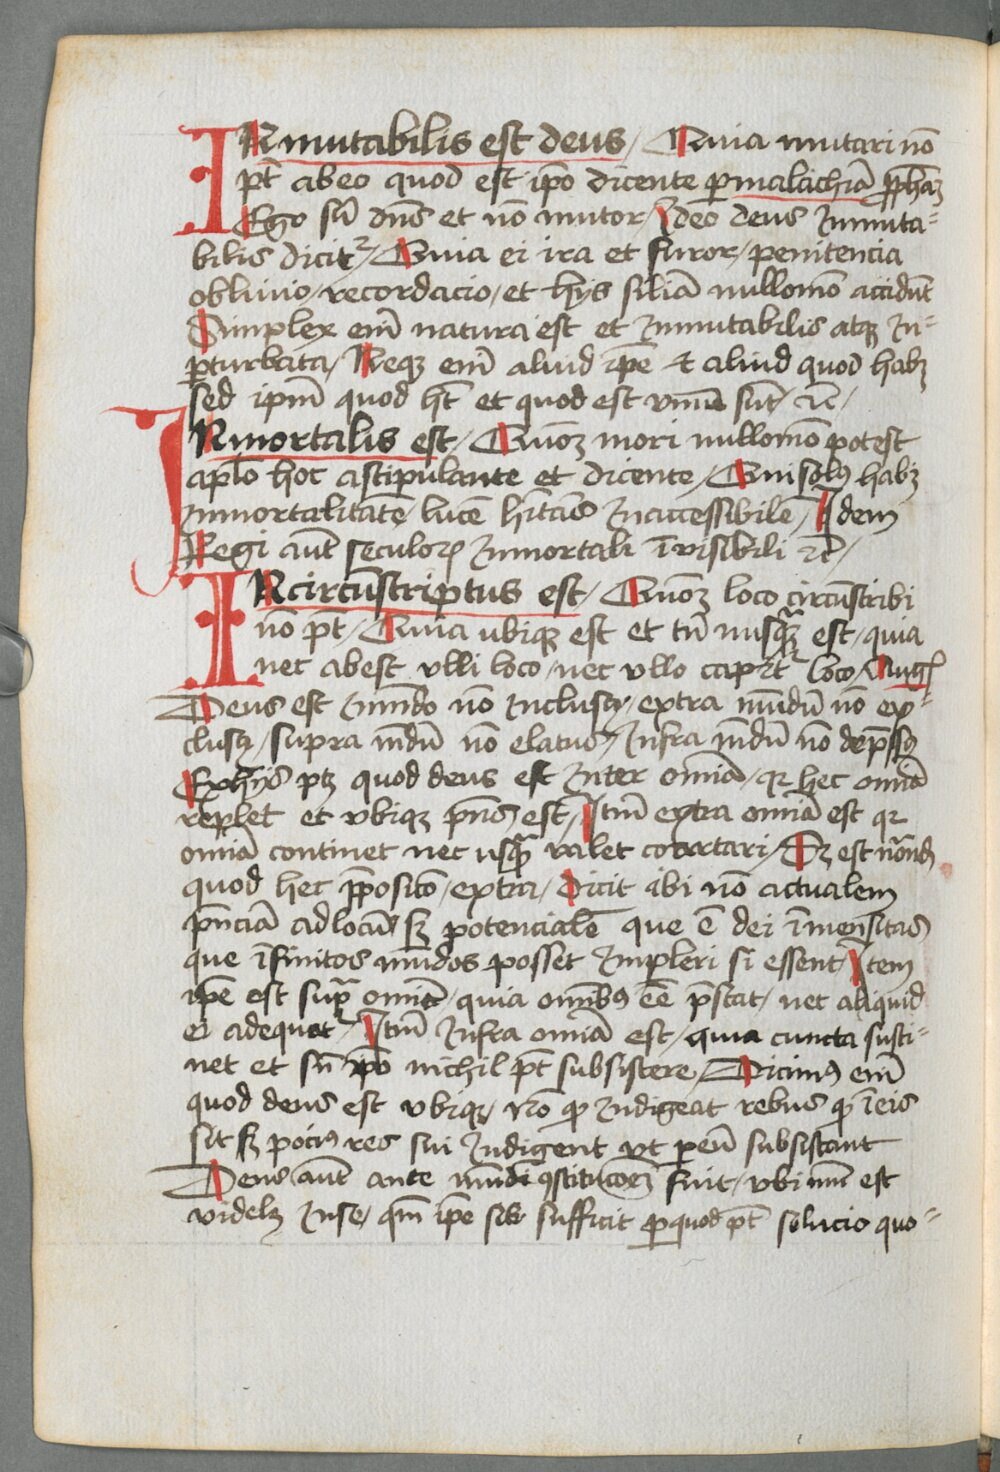 INmutabilis est deus / Quia mutari nō
pt̄ ab eo quod est ip̄o dicente ꝑ malachiā ꝓpham
Ego sū dn̄s et nō mutor / Ideo deus Inmuta⸗
bilis dicit᷑ / Quia ei ira et furor / penitencia
obliuio / recordacio / et hijs similia nullomō accidūt
Simplex em̄ natura est et Inmutabilis atqꝫ In⸗
ꝑturbata / Neqꝫ em̄ aliud ip̄e ⁊ aliud quod habꝫ
sed ip̄m quod hꝫ et quod est vnū sūt / ⁊c̄ /
INmortalis est / Quoꝫ mori nullomō potest
apl̄o hoc astipulante et dicente / Qui solꝰ habꝫ
Inmortalitatē lucē hitās Inaccessibilē / Idem
Regi aūt seculoꝝ Inmortali īvisibili ⁊c̄ /
INcircūscriptus est / Quoꝫ loco circūscribi
nō pt̄ / Quia ubiqꝫ est et tn̄ nusqꝫ est / quia
nec abest vlli loco / nec vllo capit᷑ loco / Augꝰ
Deus est Inmūdo nō Inclusꝰ / extra mūdū nō ex⸗
clusꝰ / supra mūdū nō elatus / Infra mūdū nō dep̄ssꝰ
Ex hijs ptꝫ quod deus est Inter omīa / qꝛ hec omīa
replet et vbiqꝫ pn̄s est / Itm̄ extra omīa est qꝛ
omīa continet nec usqꝫ valet coartari / Sꝫ est notandꝫ
quod hec ꝓposicō / extra / dicit ibi nō actualem
pn̄ciā ad locū sꝫ potencialē que ē dei īmensitas
que īfinitos mūdos posset Impleri si essent / Item
ip̄e est supᷓ omīa / quia omībꝰ ēe p̄stat / nec aliquid
ei adequat᷑ / Itm̄ Infra omīa est / quia cuncta susti⸗
net et sn̄ ip̄o nichil pt̄ subsistere / Dicimꝰ em̄
quod deus est vbiqꝫ / Nō ꝙ Indigeat rebus ꝙ ī eis
sit sꝫ pociꝰ res sui Indigent vt ꝑ eū subsistant
Deus aūt ante mūdi ꝯstitucoem̄ fuit / vbi nūc est
videlꝫ In se / qm̄ ip̄e sibi sufficit ꝑ quod pt̄ solucio quo⸗